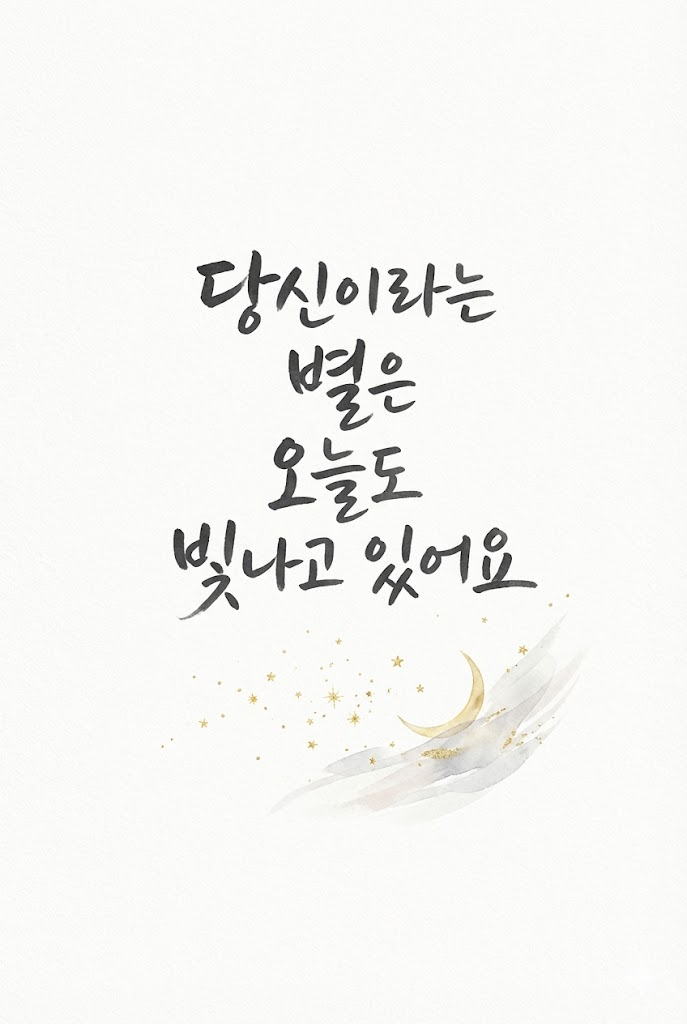 당신이라는
별은
오늘도
빛나고 있어요